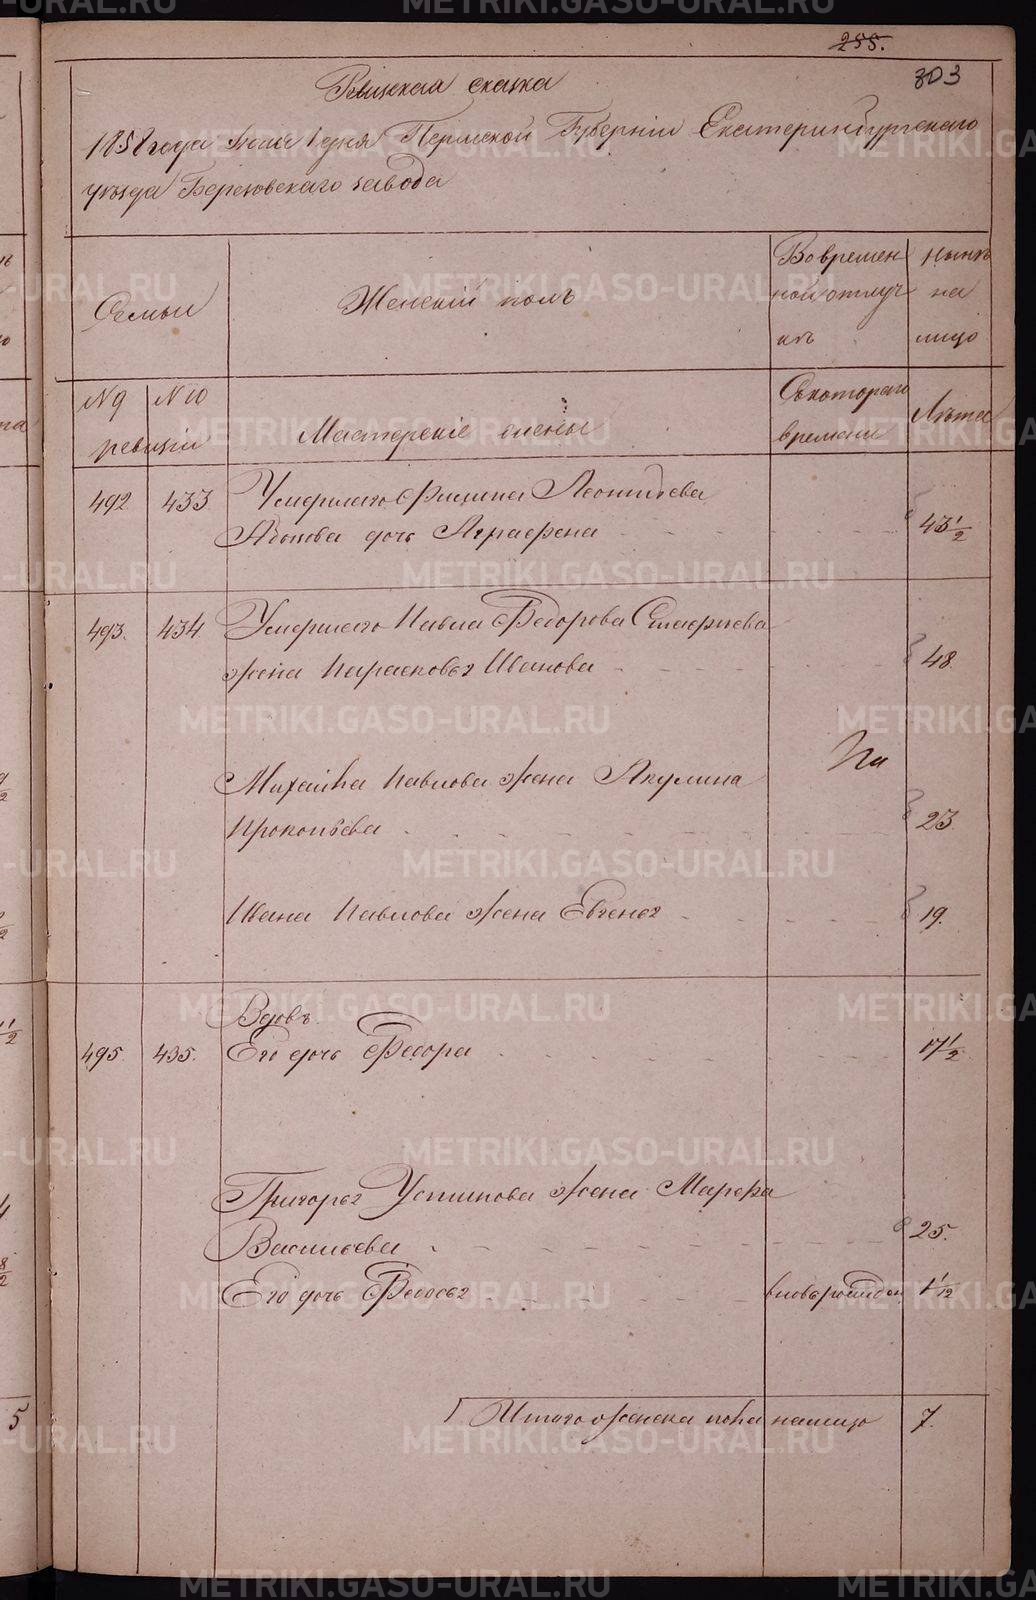 255.
303
Ревизская сказка
1858 года Июня 1 дня Пермской Губернии Екатеринбургскаго
уезда Березовскаго завода
Семьи
Женский полъ
Во времен
ной отлуч
къ
Ныне
на
лицо
N 9
N 10
ревизии
Мастерские жены
Съ котораго
времени
Лета
492
433
Умершаго Филипа Леонтьева
дочь Аграфена
43 1/2
493.
434
Умершаго Павла Федорова
жена Парасковья Иванова
48.
Михаила Павлова жена Акулина
На
Прокопьева
23.
Ивана Павлова жена Евгенья
19.
Вдовъ
495.
435.
Его дочь Федора
17 1/2
Григорья Устинова жена Марфа
Васильева
25.
Его дочь Федосья
вновь рожден
1 1/12
Итого женска пола на лицо
7.
5
METRIKI.GASO-URAL.RU